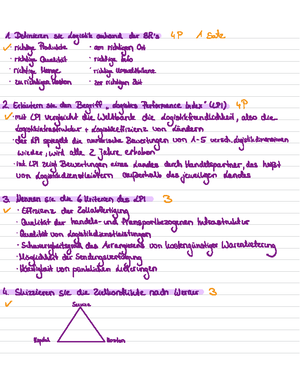 1. Definieren sie Logistik anhand der 8R's 4P 1 Seite
✓ · richtige Produkte · am richtigen Ort
· richtige Qualität · richtige Info
· richtige Menge · richtige Umweltbilanz
· zu richtigen Kosten · zur richtigen Zeit
2. Erläutern sie den Begriff „Logistics Performance Index" (LPI) 4P
✓ · mit LPI vergleicht die Weltbank die Logistikfreundlichkeit, also die
Logistikinfrastruktur + Logistikeffizienz von Ländern
· der LPI spiegelt die numerische Bewertungen von 1-5 versch. Logistikdimensionen
wieder, wird alle 2 Jahre erhoben
· int. LPI zeigt Bewertungen eines Landes durch Handelspartner, das heißt
von Logistikdienstleistern außerhalb des jeweiligen Landes
3. Nennen sie die 6 Kriterien des LPI 3
✓ · Effizienz der Zollabfertigung
· Qualität der handels- und transportbezogenen Infrastruktur
· Qualität von Logistikdienstleistungen
· Schwierigkeitsgrad des Arrangierens von kostengünstiger Warenlieferung
· Möglichkeit der Sendungsverfolgung
· Häufigkeit von pünktlichen Lieferungen
4. Skizzieren sie die Zielkonflikte nach Werner 3
✓ Service
Kapital Kosten